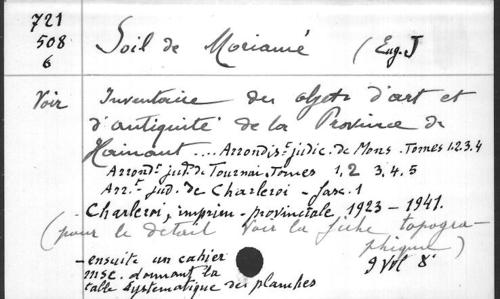 721
508
6
Soil de Moriamé (Eug. J
Voir Inventaire des objets d'art et
d'antiquité de la Province de
Hainaut .... Arrondis.t judic. de Mons. Tomes 1.2.3.4
Arrond.t jud. de Tournai. Tomes 1, 2 3, 4. 5
Arr.t jud. de Charleroi - fasc. 1
- Charleroi, imprim - provinciale, 1923 - 1941.
(pour le détail voir la fiche topogra-
phique)
- ensuite un cahier
9 vol 8°
msc. donnant la
table systématique des planches